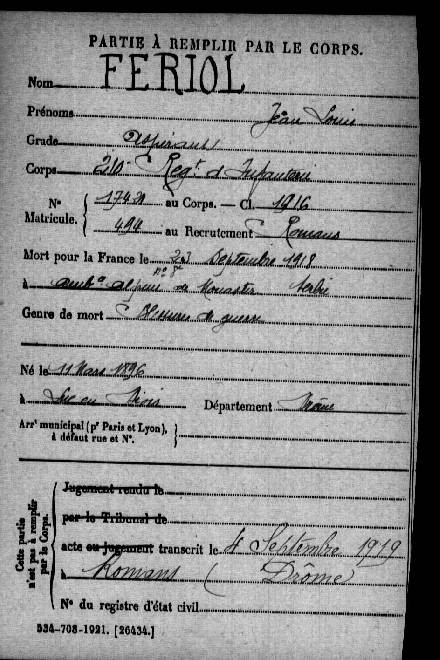 PARTIE À REMPLIR PAR LE CORPS.
Nom FERIOL
Prénoms Jean Louis
Grade Aspirant
Corps 210e Regt d'Infanterie
No 17421 au Corps. — Cl. 1916
Matricule. 494 au Recrutement Romans
Mort pour la France le 23 Septembre 1918
no 8
à Ambce alpine de Monastir Serbie
Genre de mort Blessures de guerre
Né le 11 Mars 1896
à Luc en Diois Département Drôme
Arrt municipal (pr Paris et Lyon),
à défaut rue et No.
Cette partie
n'est pas à remplir
par le Corps.
Jugement rendu le
par le Tribunal de
acte ou jugement transcrit le 4 Septembre 1919
à Romans (Drôme)
No du registre d'état civil
534-708-1921. [26434.]